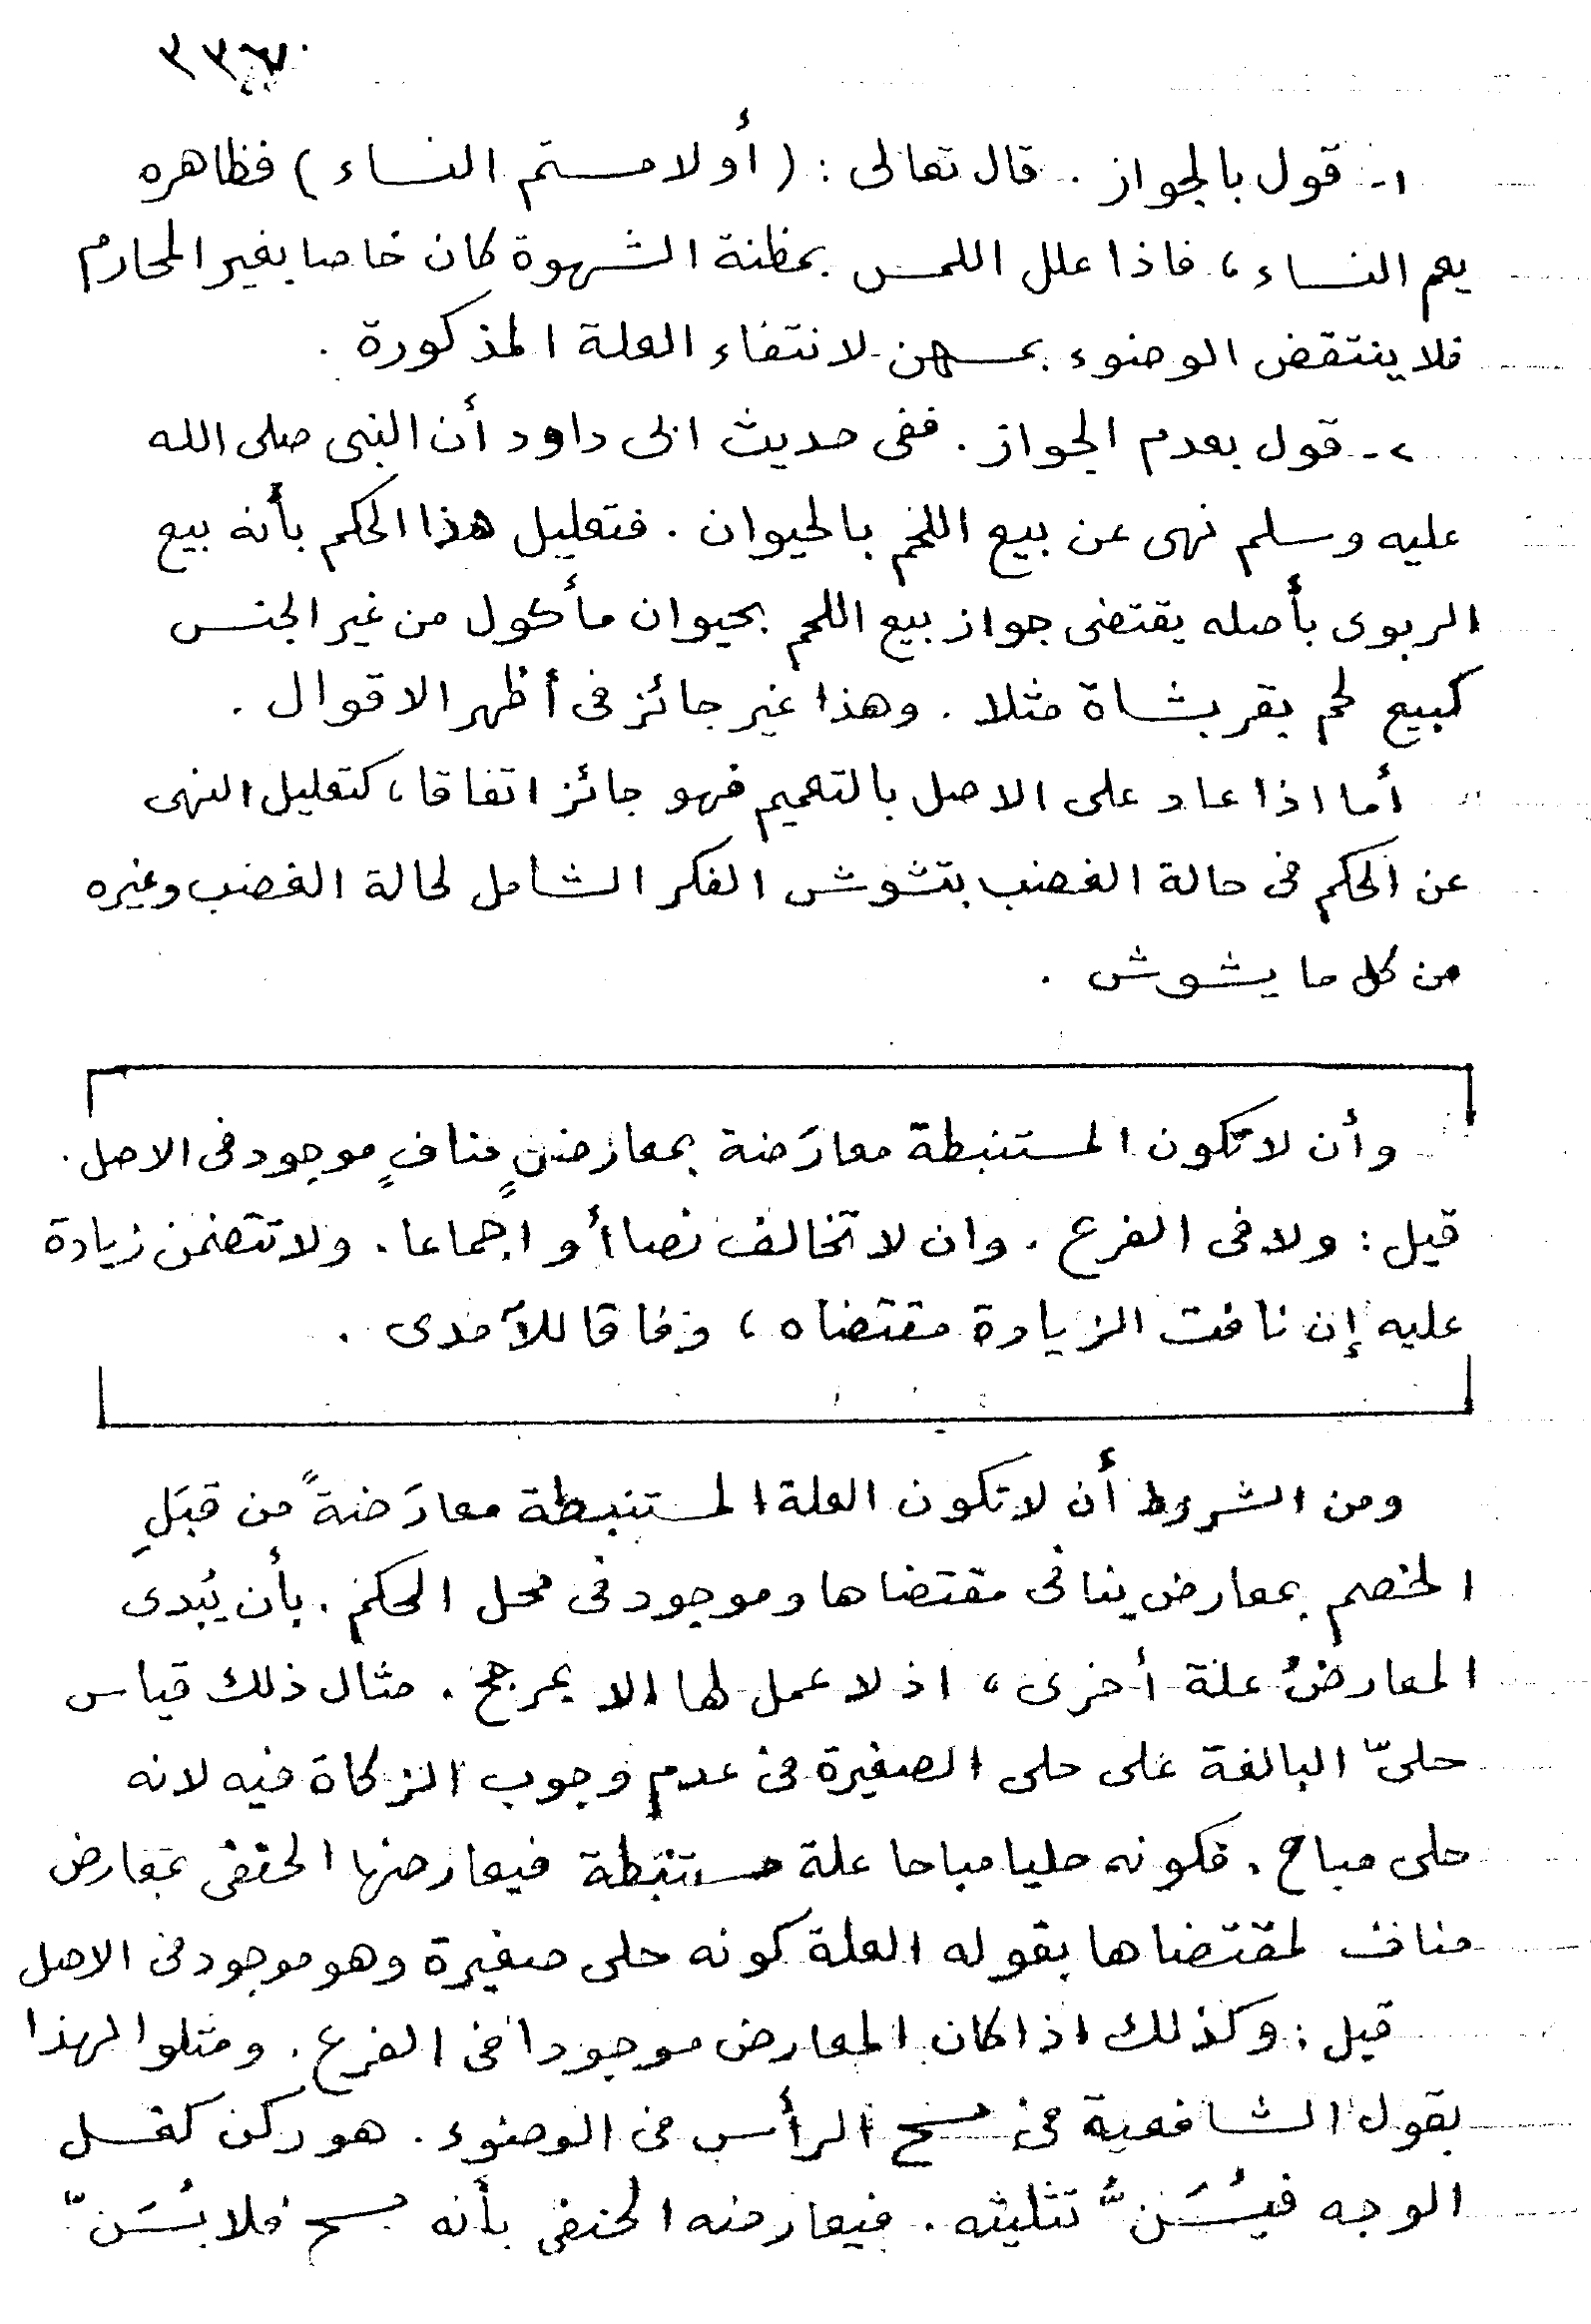 ١- قول بالجواز . قال تعالى : ( أو لامستم النساء ) فظاهره
يعم النساء ، فاذا علل اللمس بمظنة الشهوة كان خاصا بغير المحارم
فلا ينتقض الوضوء بمسهن لانتفاء العلة المذكورة .
٢- قول بعدم الجواز . ففى حديث ابى داود أن النبى صلى الله
عليه وسلم نهى عن بيع اللحم بالحيوان . فتعليل هذا الحكم بأنه بيع
الربوى بأصله يقتضى جواز بيع اللحم بحيوان مأكول من غير الجنس
كبيع لحم بقر بشاة مثلا . وهذا غير جائز فى أظهر الاقوال .
أما اذا عاد على الاصل بالتعميم فهو جائز اتفاقا ، كتعليل النهى
عن الحكم فى حالة الغضب بتشوش الفكر الشامل لحالة الغضب وغيره
من كل ما يشوش .
وأن لا تكون المستنبطة معارَضة بمعارضٍ منافٍ موجود فى الاصل .
قيل : ولا فى الفرع . وان لا تخالف نصا أو اجماعا . ولا تتضمن زيادة
عليه إن نافت الزيادة مقتضاه ، وفاقا للآمدى .
ومن الشروط أن لا تكون العلة المستنبطة معارَضةً من قبَلِ
الخصم بمعارض ينافى مقتضاها وموجود فى محل الحكم . بأن يُبدى
المعارضُ علة أخرى ، اذ لا عمل لها الا بمرجح . مثال ذلك قياس
حلىّ البالغة على حلى الصغيرة فى عدم وجوب الزكاة فيه لانه
حلى مباح . فكونه حليا مباحا علة مستنبطة فيعارضها الحنفى بمعارض
مناف لمقتضاها بقوله العلة كونه حلى صغيرة وهو موجود فى الاصل
قيل : وكذلك اذا كان المعارض موجودا فى الفرع . ومثلوا لهذا
بقول الشافعية فى مسح الرأس فى الوضوء . هو ركن كغسل
الوجه فيُسَنُّ تثليثه . فيعارضه الحنفى بأنه مسح فلا يُسَنّ